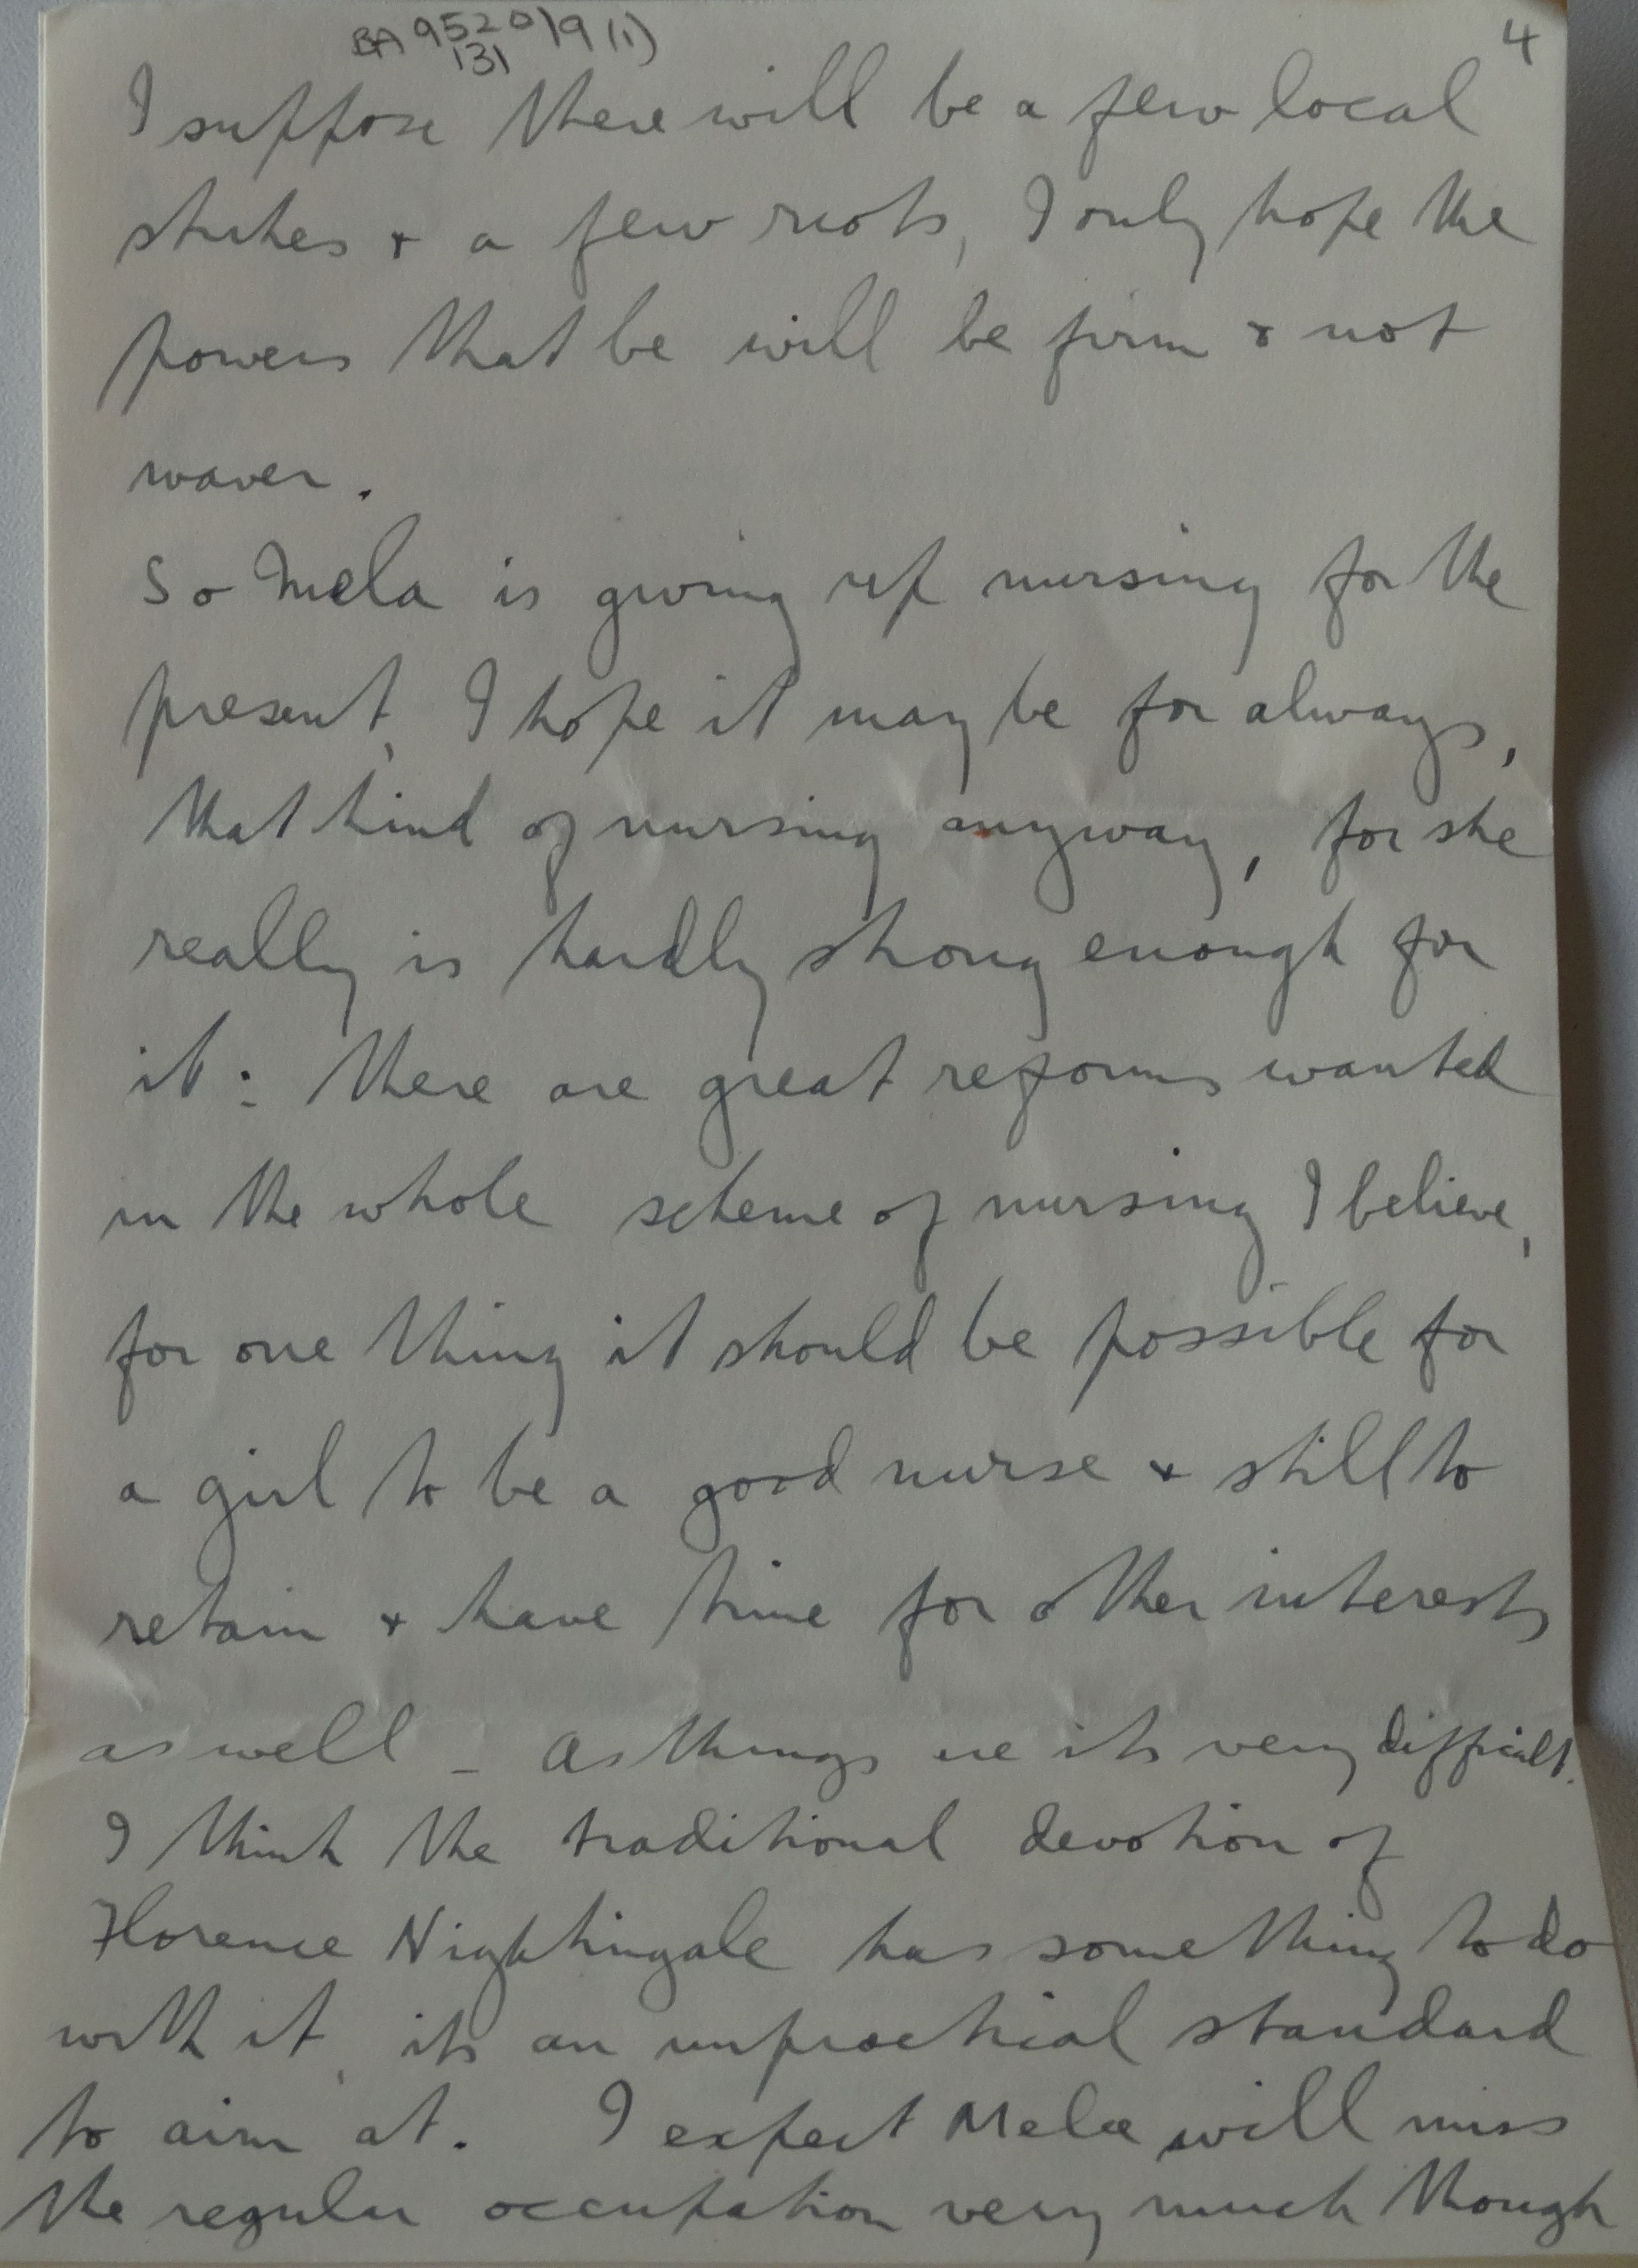 BA 9520/9 (1)
131
4
I suppose there will be a few local
strikes & a few riots, I only hope the
powers that be will be firm & not
waver.
So Mela is giving up nursing for the
present, I hope it may be for always,
that kind of nursing anyway, for she
really is hardly strong enough for
it: there are great reforms wanted
in the whole scheme of nursing I believe,
for one thing it should be possible for
a girl to be a good nurse & still to
retain & have time for other interests
as well - As things are its very difficult.
I think the traditional devotion of
Florence Nightingale has something to do
with it, its an unpractical standard
to aim at. I expect Mela will miss
the regular occupation very much though